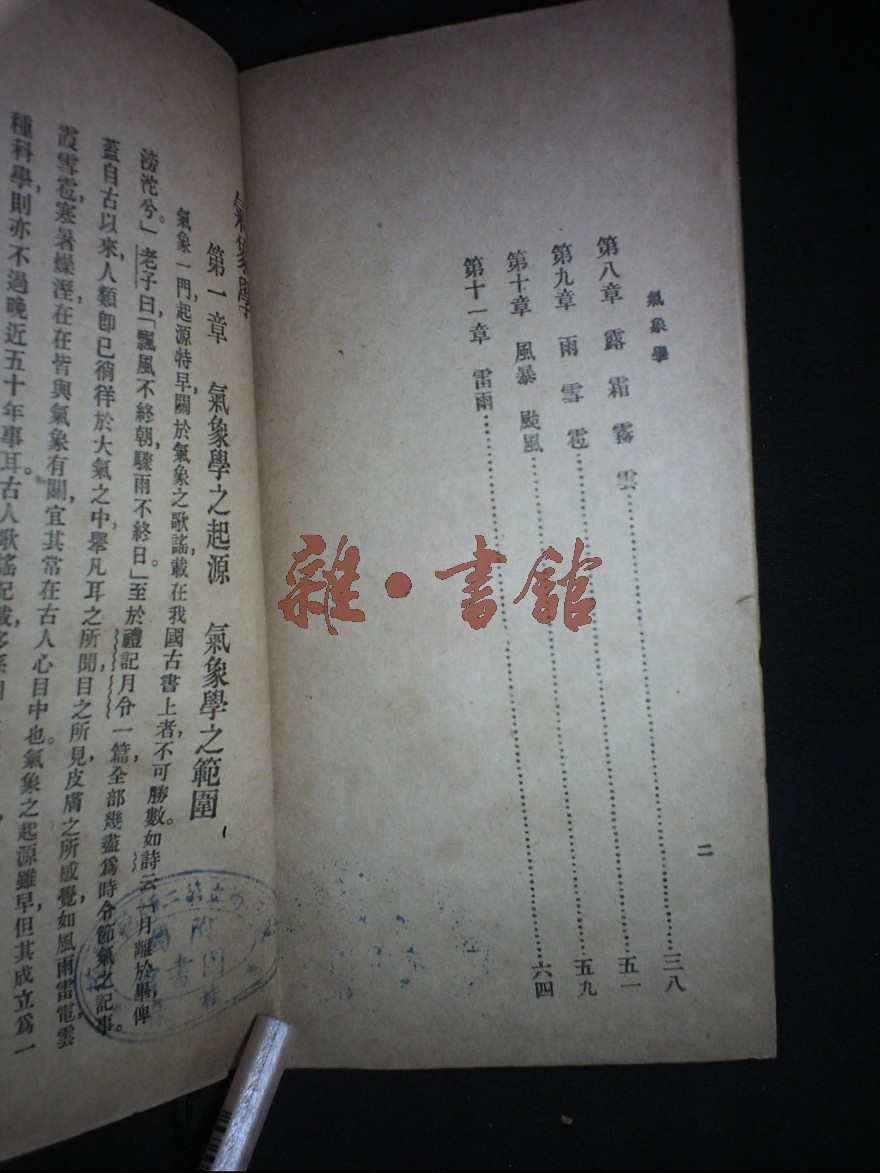 氣象學
第八章　露　霜　霧　雲……三八
第九章　雨　雪　雹……五一
第十章　風暴　颱風……五九
第十一章　雷雨……六四
二
雜·書館
氣象學
第一章　氣象學之起源　氣象學之範圍
氣象一門，起源特早，關於氣象之歌謠，載在我國古書上者，不可勝數。如詩云「月離於畢，俾
滂沱兮。」老子曰「飄風不終朝，驟雨不終日。」至於禮記月令一篇，全部幾盡爲時令節氣之記事。
蓋自古以來，人類卽已徜徉於大氣之中，舉凡耳之所聞，目之所見，皮膚之所感覺，如風雨雷電雲
霞雪雹，寒暑燥溼，在在皆與氣象有關，宜其常在古人心目中也。氣象之起源雖早，但其成立爲一
種科學，則亦不過晚近五十年事耳。古人歌謠記載